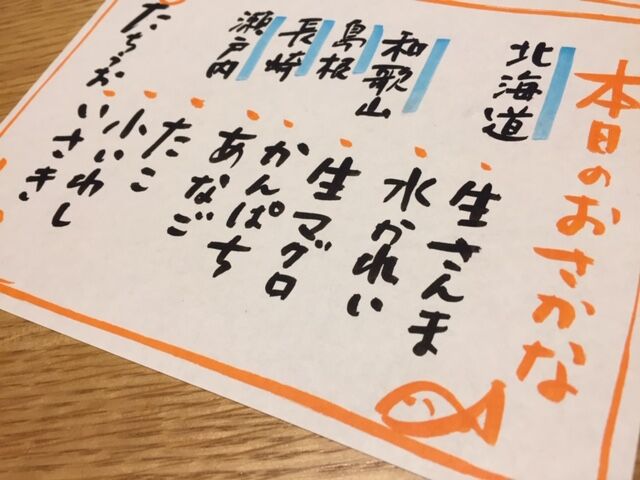 本日のおさかな
北海道
生さんま
水かれい
和歌山
生マグロ
島根
かんぱち
長崎
あなご
瀬戸内
たこ
小いわし
いさき
たちうお